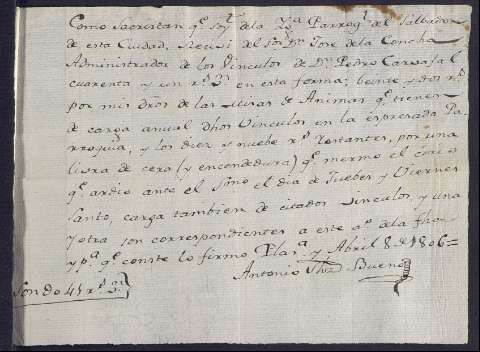 Como Sacristan q.e soy de la Yg.a Parroq.l del Salbador
de esta Ciudad, Recivi del Sor Dn Jose de la Concha
Administrador de los Vinculos de Dn Pedro Carvajal
cuarenta y un r.s vn en esta forma; beinte y dos r.s
por mis dros de las Misas de Animas q.e tienen
de carga anual dhos Vinculos en la espresada Pa
rroquia, y los diez y nuebe r.s restantes, por una
libra de cera (y encendedura) q.e mermo el cirio
q.e ardio ante el Smo el dia de Juebes y Viernes
Santo, carga tambien de citados vinculos y una
y otra son correspondientes a este a.o de la fha
y p.a q.e conste lo firmo Plas.a y Abril 8 de 1806=
Antonio Bueno
Son do 41 r.s vn